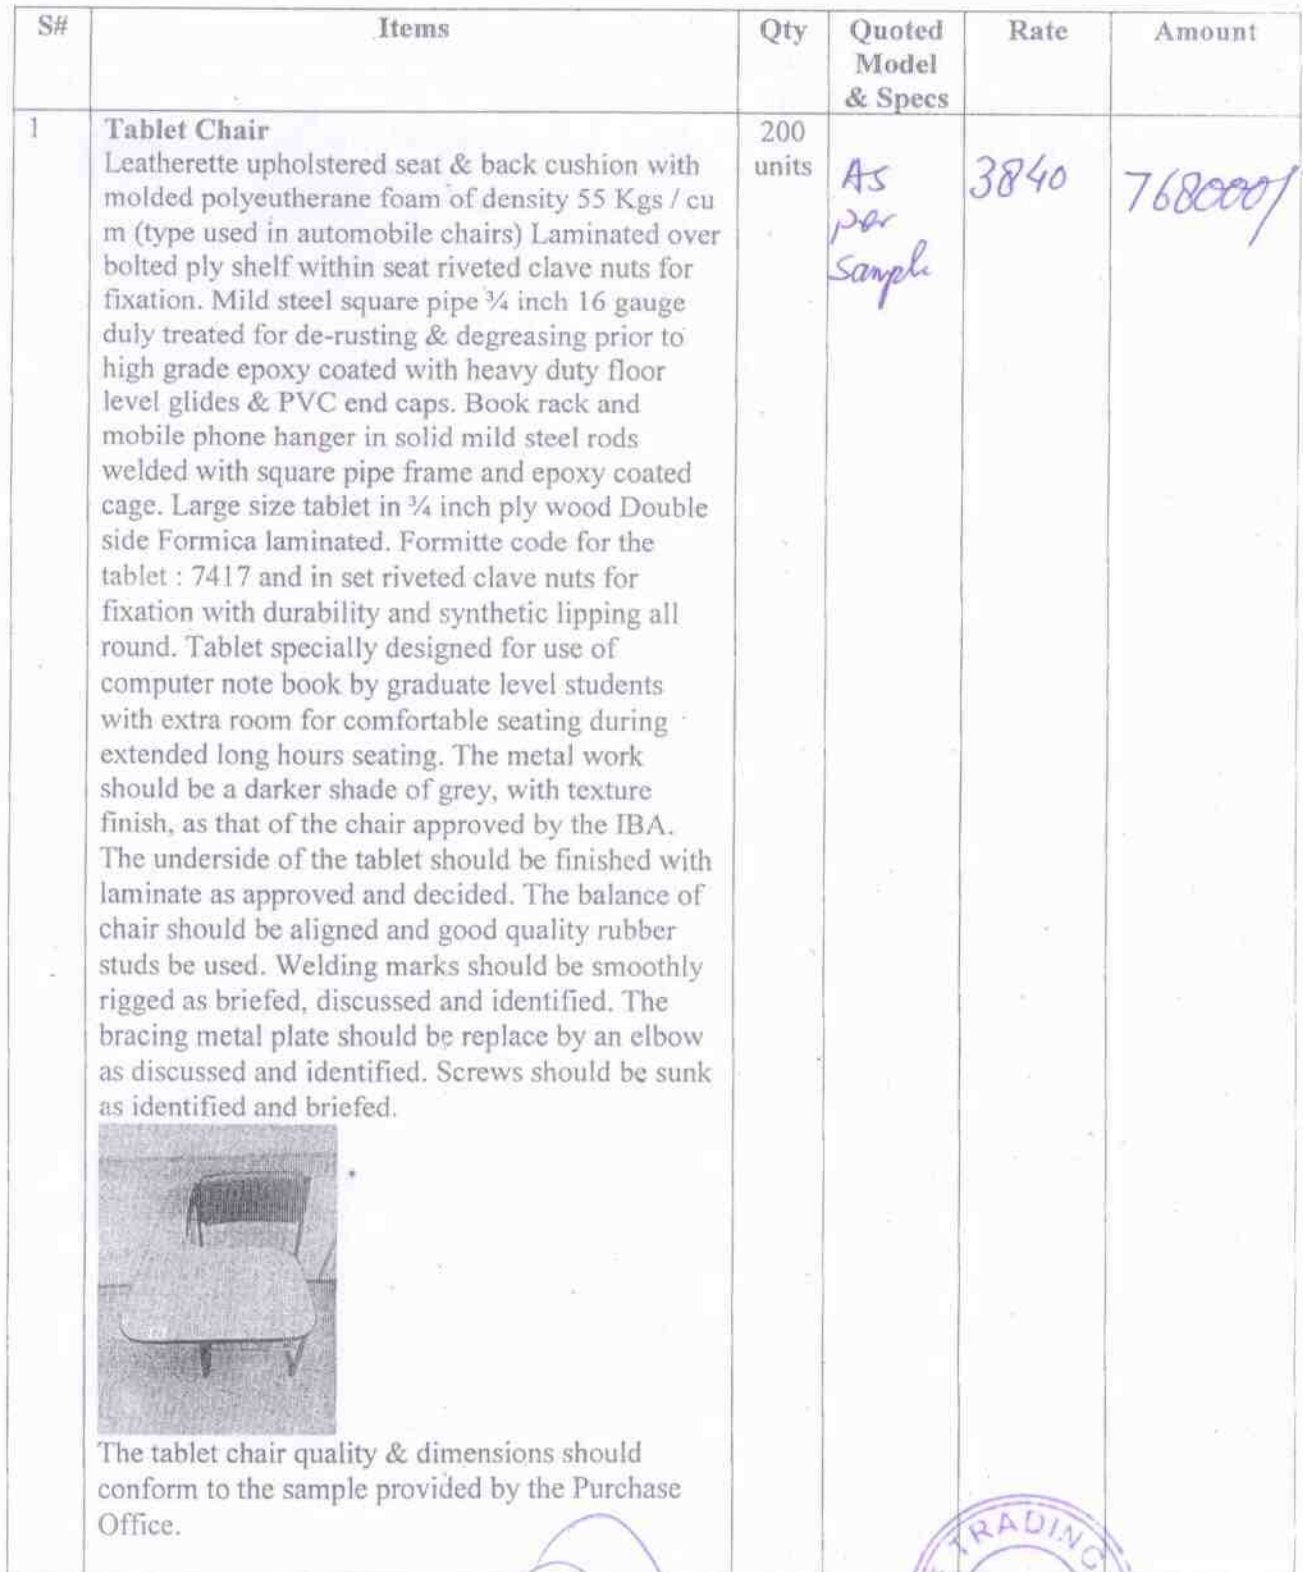 S# Items Qty Quoted Model & Specs Rate Amount
1 Tablet Chair 200 units As per Sample 3840 768000/
Leatherette upholstered seat & back cushion with
molded polyeutherane foam of density 55 Kgs / cu
m (type used in automobile chairs) Laminated over
bolted ply shelf within seat riveted clave nuts for
fixation. Mild steel square pipe ¾ inch 16 gauge
duly treated for de-rusting & degreasing prior to
high grade epoxy coated with heavy duty floor
level glides & PVC end caps. Book rack and
mobile phone hanger in solid mild steel rods
welded with square pipe frame and epoxy coated
cage. Large size tablet in ¾ inch ply wood Double
side Formica laminated. Formitte code for the
tablet : 7417 and in set riveted clave nuts for
fixation with durability and synthetic lipping all
round. Tablet specially designed for use of
computer note book by graduate level students
with extra room for comfortable seating during
extended long hours seating. The metal work
should be a darker shade of grey, with texture
finish, as that of the chair approved by the IBA.
The underside of the tablet should be finished with
laminate as approved and decided. The balance of
chair should be aligned and good quality rubber
studs be used. Welding marks should be smoothly
rigged as briefed, discussed and identified. The
bracing metal plate should be replace by an elbow
as discussed and identified. Screws should be sunk
as identified and briefed.
The tablet chair quality & dimensions should
conform to the sample provided by the Purchase
Office.
TRADING